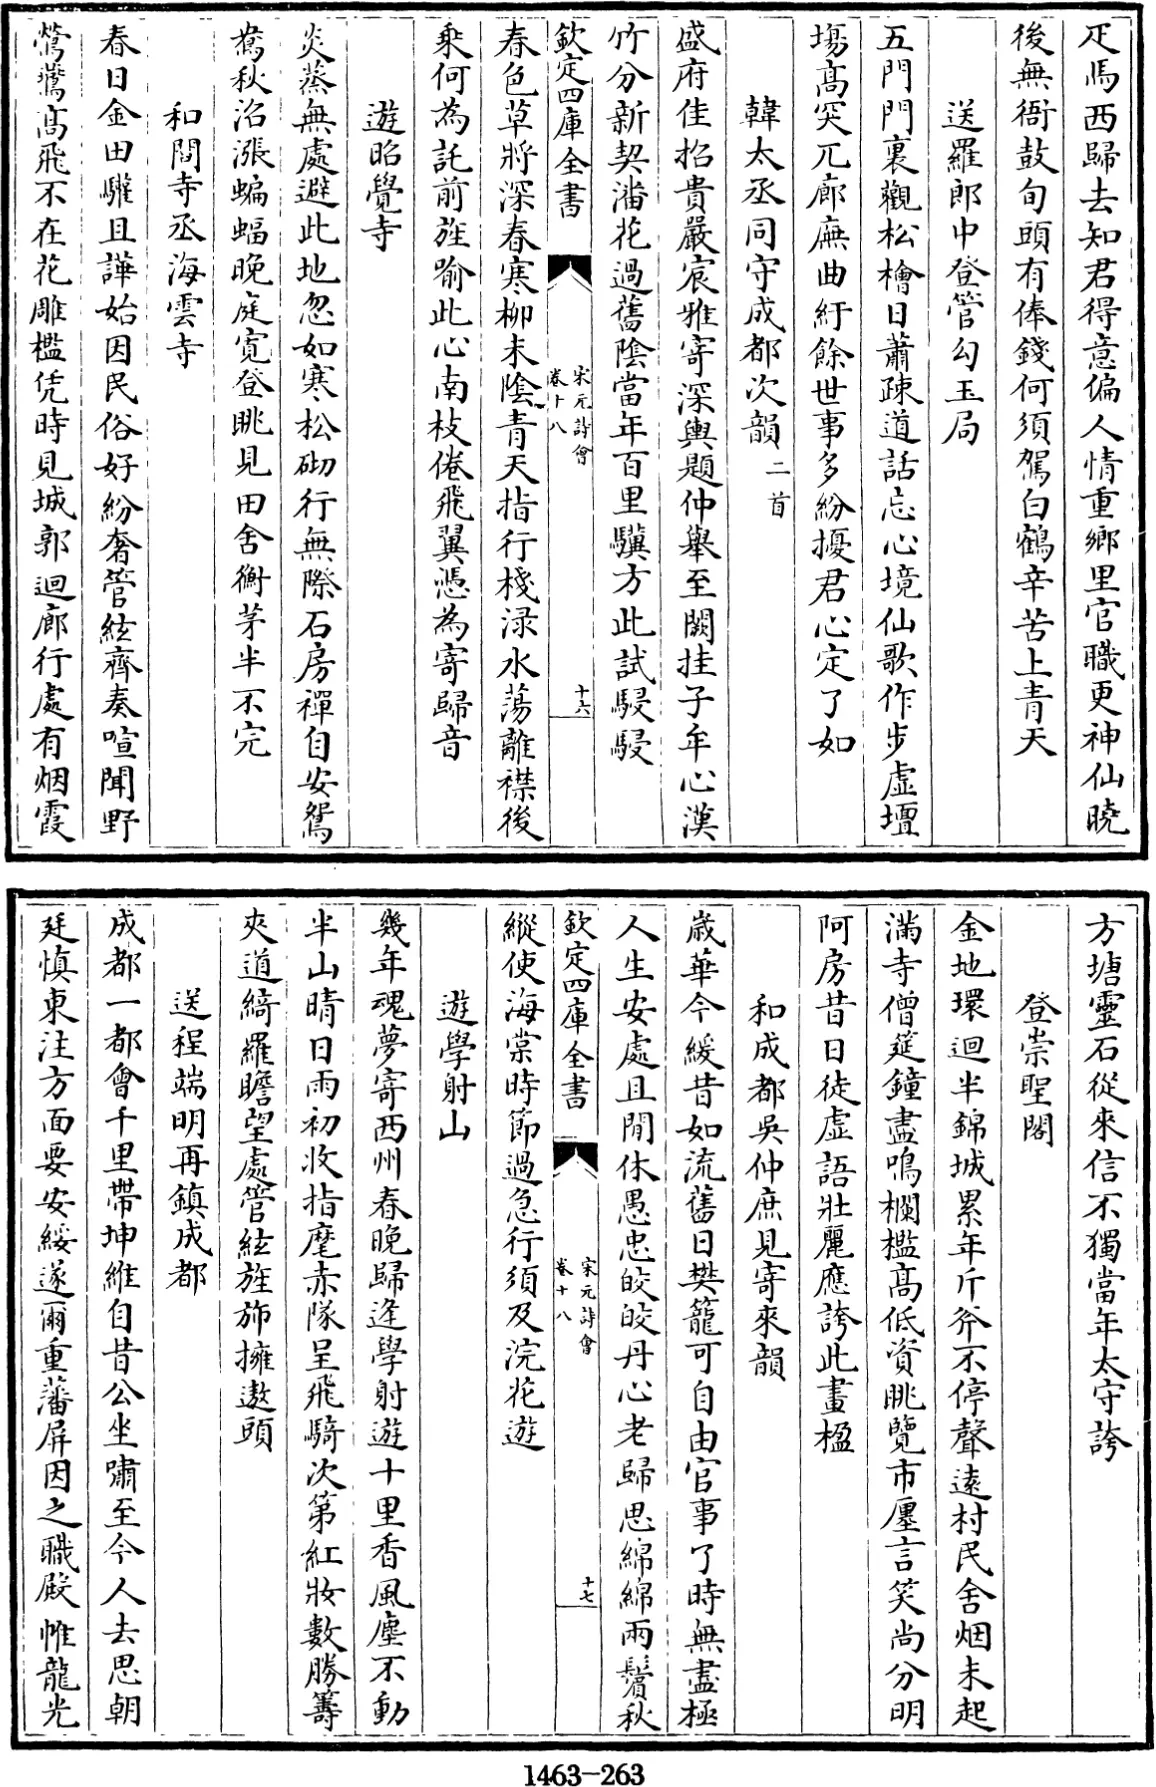 疋馬西歸去知君得意偏人情重鄉里官職更神仙曉
後無衙鼓旬頭有俸錢何須駕白鶴辛苦上青天
送羅郎中登管勾玉局
五門門裏觀松檜日蕭疎道話忘心境仙歌作步虛壇
塲高突兀廊廡曲紆餘世事多紛擾君心定了如
韓太丞同守成都次韻二首
盛府佳招貴嚴宸雅寄深輿題仲舉至闕挂子牟心漢
竹分新契潘花過舊陰當年百里驥方此試駸駸
欽定四庫全書
宋元詩會
卷十八
十六
春色草將深春寒柳未陰青天指行棧淥水蕩離襟後
乘何為託前旌喻此心南枝倦飛翼憑為寄歸音
遊昭覺寺
炎蒸無處避此地忽如寒松砌行無際石房禪自安鴛
鴦秋沼漲蝙蝠晚庭寛登眺見田舍衡茅半不完
和閻寺丞海雲寺
春日金田驩且譁始因民俗好紛奢管絃齊奏喧聞野
鶯鷰高飛不在花雕檻凭時見城郭迴廊行處有烟霞
方塘靈石從來信不獨當年太守誇
登崇聖閣
金地環迴半錦城累年斤斧不停聲遠村民舍烟未起
滿寺僧筵鐘盡鳴欄檻高低資眺覽市廛言笑尚分明
阿房昔日徒虛語壯麗應誇此畫楹
和成都吳仲庶見寄來韻
歳華今緩昔如流舊日樊籠可自由官事了時無盡極
人生安處且閒休愚忠皎皎丹心老歸思綿綿兩鬢秋
欽定四庫全書
宋元詩會
卷十八
十七
縱使海棠時節過急行須及浣花遊
遊學射山
幾年魂夢寄西州春晚歸逢學射遊十里香風塵不動
半山晴日雨初收指麾赤隊呈飛騎次第紅妝數勝籌
夾道綺羅瞻望處管絃旌斾擁遨頭
送程端明再鎮成都
成都一都會千里帶坤維自昔公坐嘯至今人去思朝
廷慎東注方面要安綏遂爾重藩屏因之職殿帷龍光
1463-263